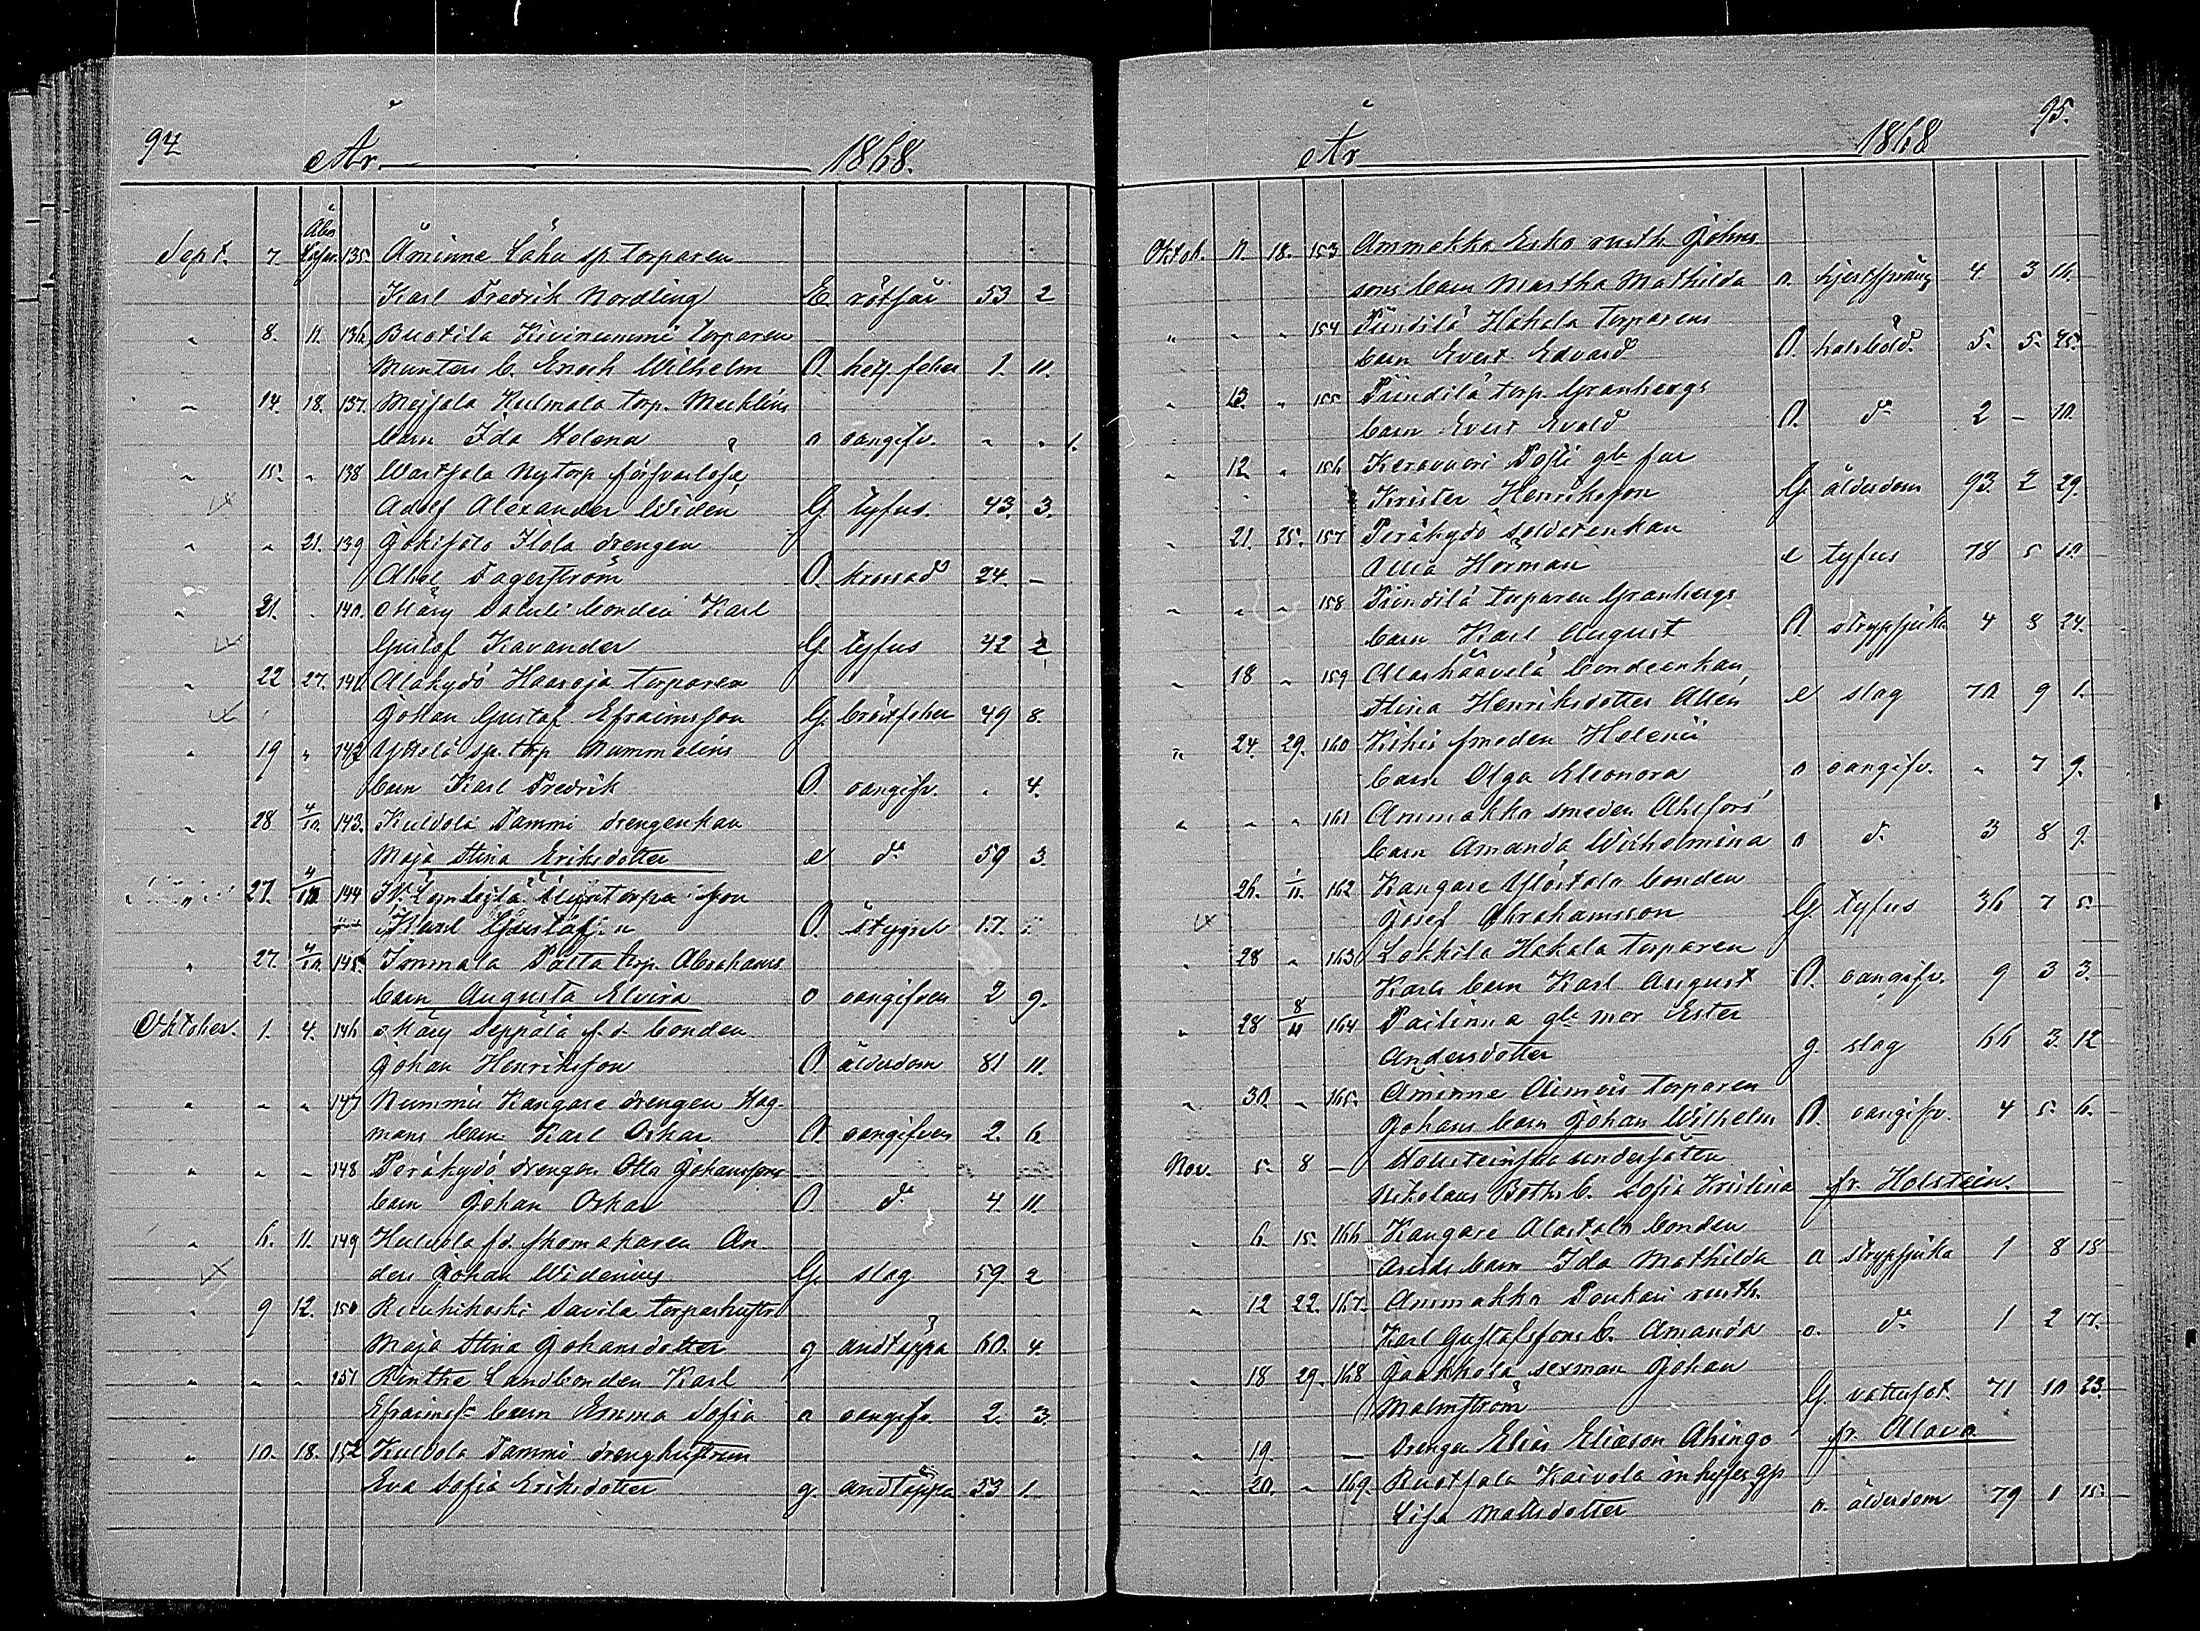 94
År 1868.
Åbo
Sept. 7. 135. Åminne Lähu sp. torparen
Karl Fredrik Nordling E. rötfär 53 2
" 8. 11. 136. Buotila Kivinummi torparen
Munters b. Enoch Wilhelm O. het. feber 1. 11.
" 14. 18. 137. Meijala Kulmala torp. Mecklins
barn Ida Helena o oangifv. " " 1.
" 15. " 138 Wartsala Nytorp försvarlöse
Adolf Alexander Widen G. tyfus. 43. 3.
" " 21. 139 Jokisalo Ilola drengen
Abel Fagerström O. krossad 24. –
" 21. " 140. Märy bonden Karl
Gustaf Kavander G. tyfus 42 2
" 22 27. 141. Alakydö Haaroja torparen
Johan Gustaf Efraimsson G. bröstfeber 49 8.
" 19 " 142 Yttelä sp. torp Nummelins
barn Karl Fredrik O. oangifv. " 4.
" 28 4/10. 143. Kulvola Tammi drengenkan
Maja Stina Eriksdotter e d:o 59 3.
27. 4/10 144 son
Karl Gustaf O. stygn 17.
" 27. 4/10. 145. Immala Potta torp. Abrahams
barn Augusta Elvira o oangifven 2 9.
Oktober. 1. 4. 146 Märy Seppälä f.d. bonden
Johan Henriksson O. ålderdom 81 11.
" " " 147 Nummis Kangare drengen Hag-
mans barn Karl Oskar O oangifven 2. 6.
" " " 148 Peräkydö drengen Otto Johanssons
barn Johan Oskar O. d:o 4. 11.
" 6. 11 149 Kulvola fd. skomakaren An-
ders Johan Widenius G. slag 59 2
" 9 12. 150 Ruuhikoski Savila torparhustru
Maja Stina Johansdotter g andtäppa 60. 4.
" " " 151 Rinthe Landbonden Karl
Efraimss. barn Emma Sofia o oangifv. 2. 3.
" 10. 18. 152 Kulvola Tammi drenghustrun
Eva Sofia Eriksdotter g. andtäppa 53 1.
95.
År 1868
Oktob. 11. 18. 153 Ammakka Esko rusth. Johns
sons barn Martha Mathilda o. hjertsprång 4 3 16.
" " " 154 Piindilä Hakala torparens
barn Evert Edvard O. halsböld. 5. 5. 25.
" 13. " 155 Piindilä torp. Granbergs
barn Evert Evald O. d:o 2 – 10.
" 12 " 156 Keravuori Posti gb. far
Krister Henriksson G. ålderdom 93. 2 29.
" 21. 25. 157 Peräkydö soldatenkan
Ulla Hörman e tyfus 78 5 10
" " " 158 Piindilä torparen Granbergs
barn Karl August O. strypsjuka 4 8 24.
" 18 " 159 Alashäävelä bondeenkan
Stina Henriksdotter Allén e slag 70 9 1.
" 24. 29. 160 Kihis smeden Helenii
barn Olga Eleonora o oangifv. " 7 9.
" " " 161 Ammakka smeden Ahlfors'
barn Amanda Wilhelmina o d:o 3 8 9.
" 26. 1/11. 162 Kangare Ylöstalo bonden
Josef Abrahamsson G. tyfus 36 7 5.
" 28 " 163 Lokkila Hakala torparen
Karls barn Karl August O. oangifv. 9 3 3.
" 28 8/11 164 Pailinna gb. mor Ester
Andersdotter g. slag 66 3. 12
" 30. " 165. Åminne Aimois torparen
Johans barn Johan Wilhelm O. oangifv. 4 5. 6.
Nov. 5. 8 – Holsteinska undersåten
Nikolaus Boths b. Sofia Kristina fr. Holstein.
" 6. 15. 166 Kangare Alastalo bonden
barn Ida Mathilda o strypsjuka 1 8 18
" 12 22. 167. Ammakka Poukari rusth.
Karl Gustafssons b. Amanda o. d:o 1 2 17.
" 18 29. 168 Jaakkola sexman Johan
Malmström G. vattusot 71 10 23.
" 19. – Drengen Elias Eliasson Ahingo fr. Alavo
" 20. " 169. Ruotsala Kaivola inhyses gp
Lisa Mattsdotter o. ålderdom 79 1 15.